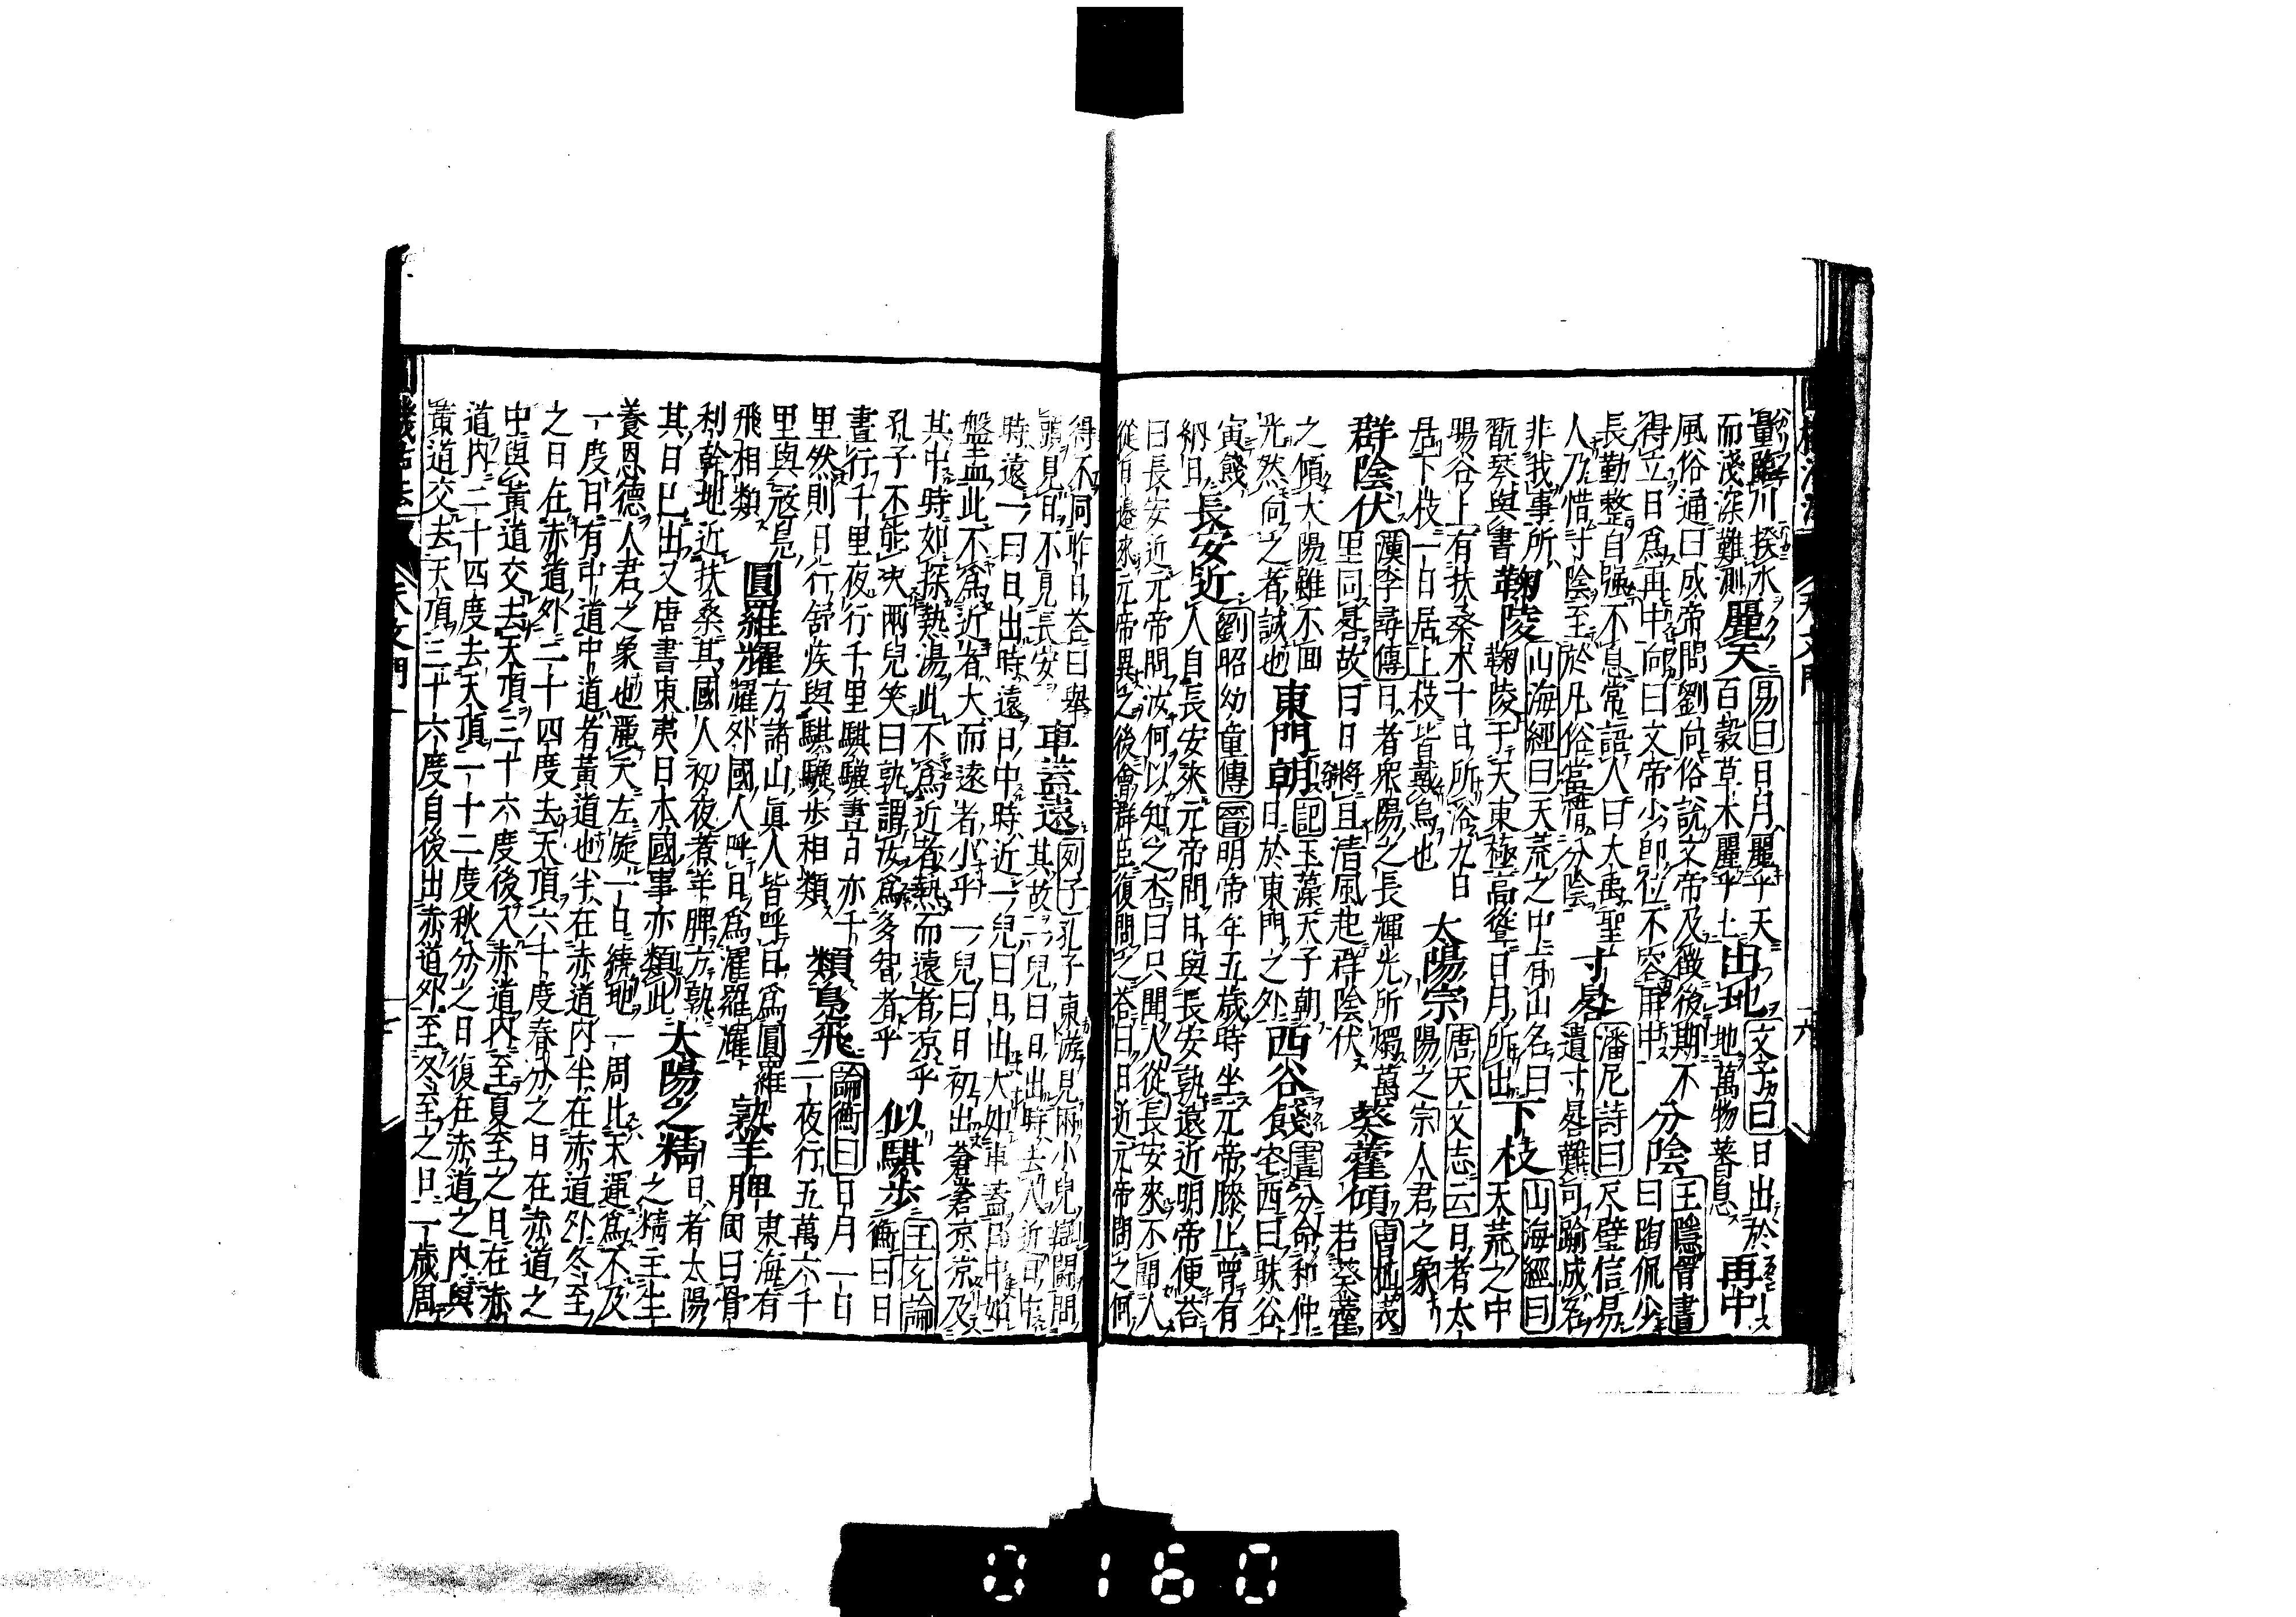 量臨川揆水
而淺深難測
麗天
易曰日月麗乎天
百穀草木麗乎土
出地
文子曰日出於
地萬物蕃息
再中
風俗通曰成帝問劉向俗説文帝及徴後期不
得立日爲再中向曰文帝少即位不容再中
分陰
王隱晉書
曰陶侃少
長勤整自強不息常語人曰大禹聖
人乃惜寸陰至於凡俗當惜分陰
寸晷
潘尼詩曰尺璧信易
遺寸晷難可踰成客
非我事所
翫琴與書
鞠陵
山海經曰天荒之中有山名曰
鞠陵于天東極高聳日月所出
下枝
山海經曰
天荒之中
暘谷上有扶桑木十日所浴九日
居下枝一日居上枝皆戴烏也
太陽宗
唐天文志云日者太
陽之宗人君之象
群陰伏
漢李尋傳日者衆陽之長輝光所燭萬
里同晷故曰日將旦清風起群陰伏
葵藿傾
曹植表
若葵藿
之傾大陽雖不面
光然向之者誠也
東門朝
記玉藻天子朝
日於東門之外
西谷餞
書分命和仲
宅西曰昧谷
寅餞
納日
長安近
劉昭幼童傳晉明帝年五歳時坐元帝膝上曾有
人自長安來元帝問日與長安孰遠近明帝便荅
曰長安近元帝問汝何以知之荅曰只聞人從長安來不聞人
從日邊來元帝異之後會群臣復問之荅曰日近元帝問之何
得不同昨日荅曰舉
頭見日不見長安
車蓋遠
列子孔子東游見兩小兒辯鬪問
其故一兒曰日出時去人近日中
時遠一曰日出時遠日中時近一兒曰日出大如車蓋日中如
盤盂此不爲近者大而遠者小乎一兒曰日初出蒼蒼涼涼及
其中時如探熱湯此不爲近者熱而遠者涼乎
孔子不能决兩兒笑曰孰謂汝爲多智者乎
似騏步
王充論
衡曰日
晝行千里夜行千里騏驥晝日亦千
里然則日行舒疾與騏驥步相類
類鳧飛
論衡曰日月一日
一夜行五萬六千
里與鳧
飛相類
圓羅耀
方諸山眞人皆呼日爲圓羅
耀外國人呼日爲濯羅耀
熟羊脾
東海有
國曰骨
利幹地近扶桑其國人初夜煮羊脾方熟
其日已出又唐書東夷日本國事亦類此
太陽之精
日者太陽
之精主生
養恩德人君之象也麗天左旋一日繞地一周比天運爲不及
一度日有中道中道者黃道也半在赤道内半在赤道外冬至
之日在赤道外二十四度去天頂六十度春分之日在赤道之
中與黃道交去天頂三十六度後入赤道内至夏至之日在赤
道内二十四度去天頂一十二度秋分之日復在赤道之内與
黃道交去天頂三十六度自後出赤道外至冬至之日一歲周
天文門
0160